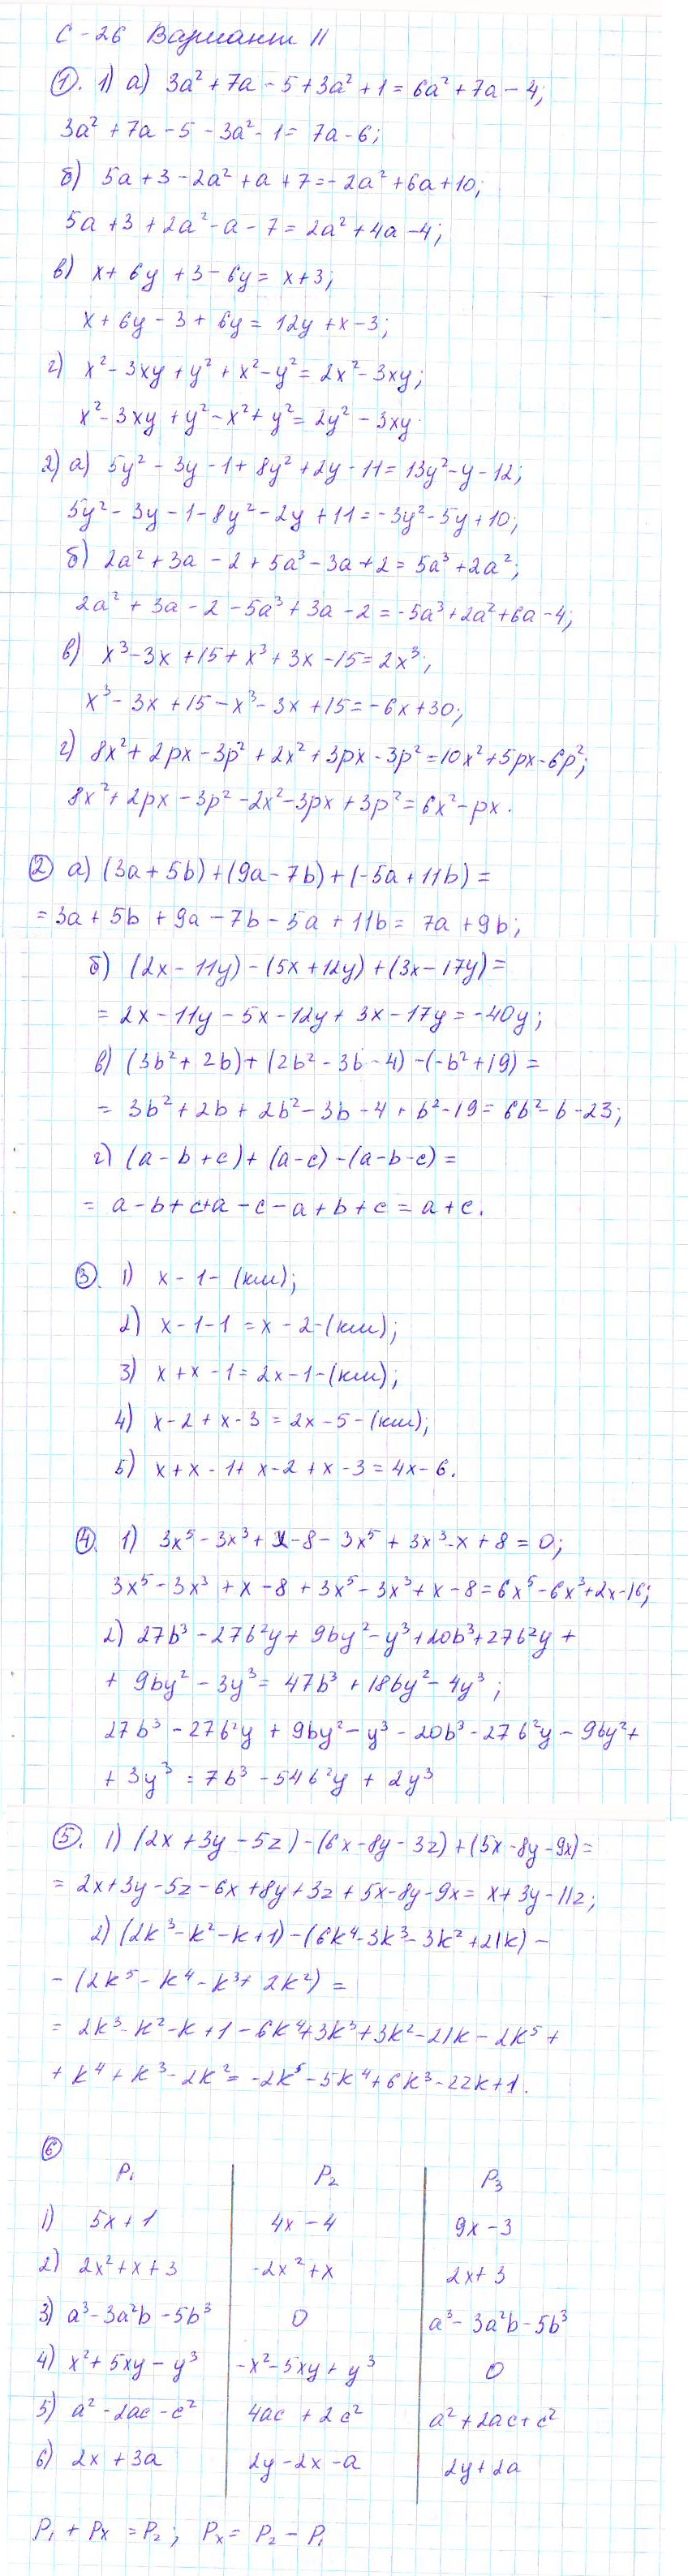 С-26 Вариант II
1. 1) а) 3a² + 7a - 5 + 3a² + 1 = 6a² + 7a - 4;
3a² + 7a - 5 - 3a² - 1 = 7a - 6;
б) 5a + 3 - 2a² + a + 7 = - 2a² + 6a + 10;
5a + 3 + 2a² - a - 7 = 2a² + 4a - 4;
в) x + 6y + 3 - 6y = x + 3;
x + 6y - 3 + 6y = 12y + x - 3;
г) x² - 3xy + y² + x² - y² = 2x² - 3xy;
x² - 3xy + y² - x² + y² = 2y² - 3xy.
2) а) 5y² - 3y - 1 + 8y² + 2y - 11 = 13y² - y - 12;
5y² - 3y - 1 - 8y² - 2y + 11 = -3y² - 5y + 10;
б) 2a² + 3a - 2 + 5a³ - 3a + 2 = 5a³ + 2a²;
2a² + 3a - 2 - 5a³ + 3a - 2 = -5a³ + 2a² + 6a - 4;
в) x³ - 3x + 15 + x³ + 3x - 15 = 2x³;
x³ - 3x + 15 - x³ - 3x + 15 = -6x + 30;
г) 8x² + 2px - 3p² + 2x² + 3px - 3p² = 10x² + 5px - 6p²;
8x² + 2px - 3p² - 2x² - 3px + 3p² = 6x² - px.
2 а) (3a + 5b) + (9a - 7b) + (-5a + 11b) =
= 3a + 5b + 9a - 7b - 5a + 11b = 7a + 9b;
б) (2x - 11y) - (5x + 12y) + (3x - 17y) =
= 2x - 11y - 5x - 12y + 3x - 17y = -40y;
в) (3b² + 2b) + (2b² - 3b - 4) - (-b² + 19) =
= 3b² + 2b + 2b² - 3b - 4 + b² - 19 = 6b² - b - 23;
г) (a - b + c) + (a - c) - (a - b - c) =
= a - b + c + a - c - a + b + c = a + c.
3. 1) x - 1 - (км);
2) x - 1 - 1 = x - 2 - (км);
3) x + x - 1 = 2x - 1 - (км);
4) x - 2 + x - 3 = 2x - 5 - (км);
5) x + x - 1 + x - 2 + x - 3 = 4x - 6.
4. 1) 3x⁵ - 3x³ + x - 8 - 3x⁵ + 3x³ - x + 8 = 0;
3x⁵ - 3x³ + x - 8 + 3x⁵ - 3x³ + x - 8 = 6x⁵ - 6x³ + 2x - 16;
2) 27b³ - 27b²y + 9by² - y³ + 20b³ + 27b²y +
+ 9by² - 3y³ = 47b³ + 18by² - 4y³;
27b³ - 27b²y + 9by² - y³ - 20b³ - 27b²y - 9by² +
+ 3y³ = 7b³ - 54b²y + 2y³
5. 1) (2x + 3y - 5z) - (6x - 8y - 3z) + (5x - 8y - 9x) =
= 2x + 3y - 5z - 6x + 8y + 3z + 5x - 8y - 9x = x + 3y - 11z;
2) (2k³ - k² - k + 1) - (6k⁴ - 3k³ - 3k² + 21k) -
- (2k⁵ - k⁴ - k³ + 2k²) =
= 2k³ - k² - k + 1 - 6k⁴ + 3k³ + 3k² - 21k - 2k⁵ +
+ k⁴ + k³ - 2k² = -2k⁵ - 5k⁴ + 6k³ - 22k + 1.
6
P₁ P₂ P₃
1) 5x + 1 4x - 4 9x - 3
2) 2x² + x + 3 -2x² + x 2x + 3
3) a³ - 3a²b - 5b³ 0 a³ - 3a²b - 5b³
4) x² + 5xy - y³ -x² - 5xy + y³ 0
5) a² - 2ac - c² 4ac + 2c² a² + 2ac + c²
6) 2x + 3a 2y - 2x - a 2y + 2a
P₁ + Pₓ = P₂; Pₓ = P₂ - P₁